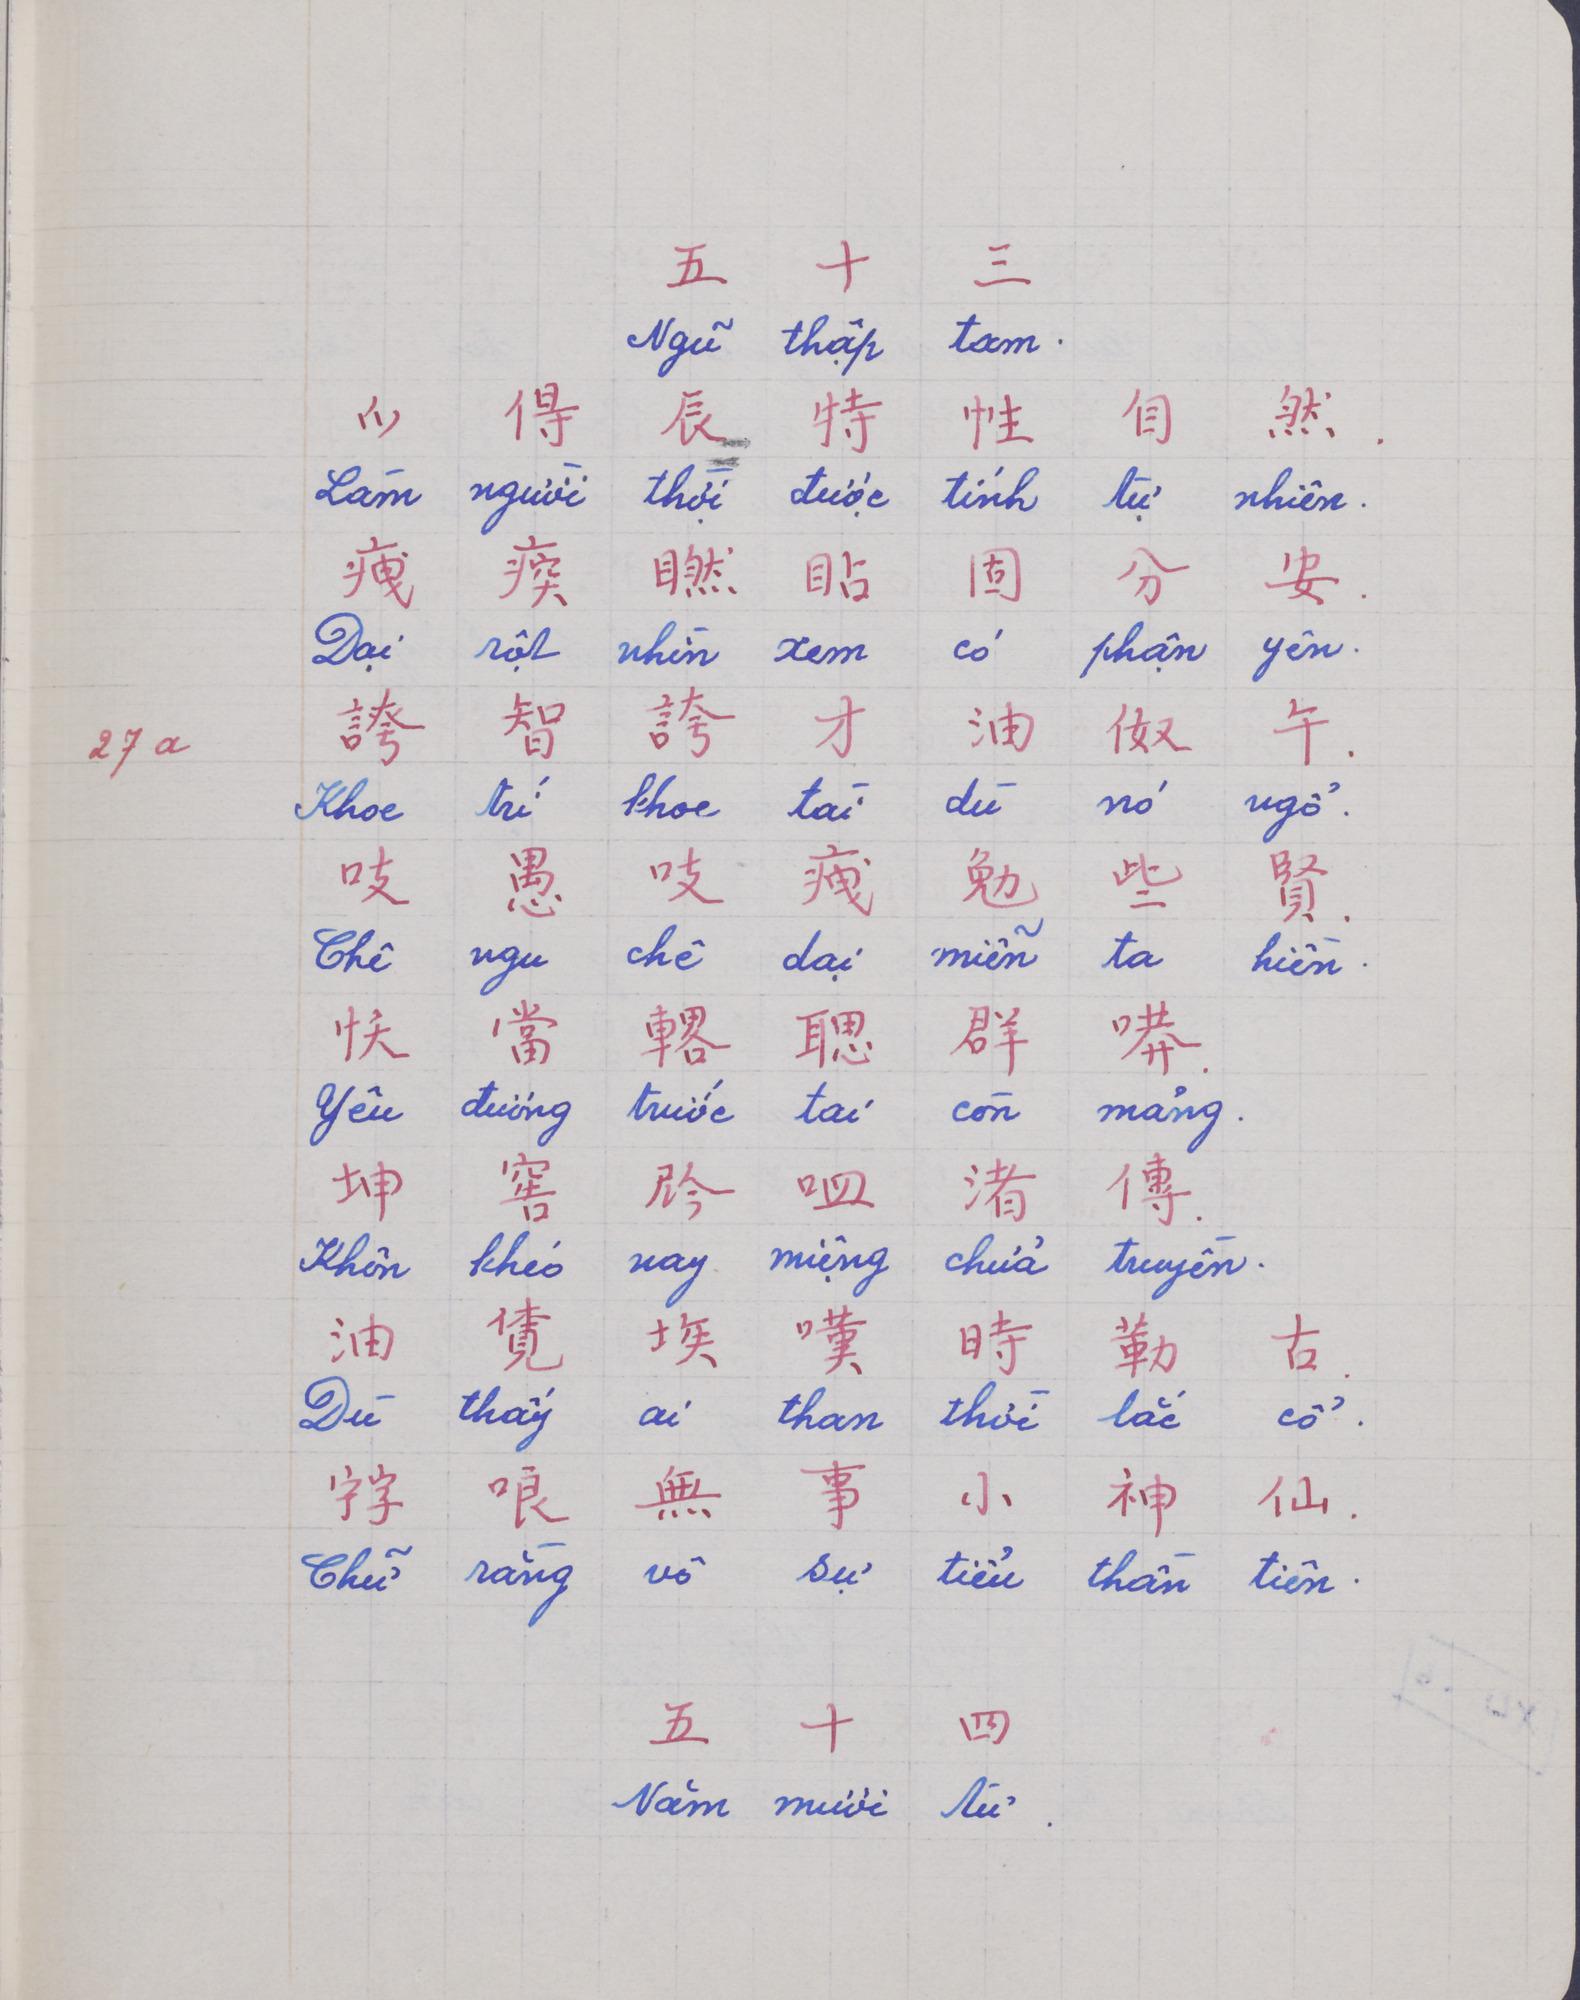 五 十 三
Ngũ thập tam.
𪜀 得 辰 特 性 自 然.
Làm người thời được tính tự nhiên.
𤵺 瘈 瞧 貼 固 分 安.
Dại rột nhìn xem có phận yên.
27a
誇 智 誇 才 油 伮 午.
Khoe trí khoe tài dù nó ngổ.
吱 愚 吱 𤵺 勉 些 賢.
Chê ngu chê dại miễn ta hiền.
㤇 當 聰 群 𠻦.
Yêu đương trước tai còn mảng.
坤 窖 𫢩 𠰘 渚 傳.
Khôn khéo nay miệng chửa truyền.
油 覔 埃 嘆 時 勒 古.
Dù thấy ai than thời lắc cổ.
𡨸 哴 無 事 小 神 仙.
Chữ rằng vô sự tiểu thần tiên.
五 十 四
Năm mươi tư.